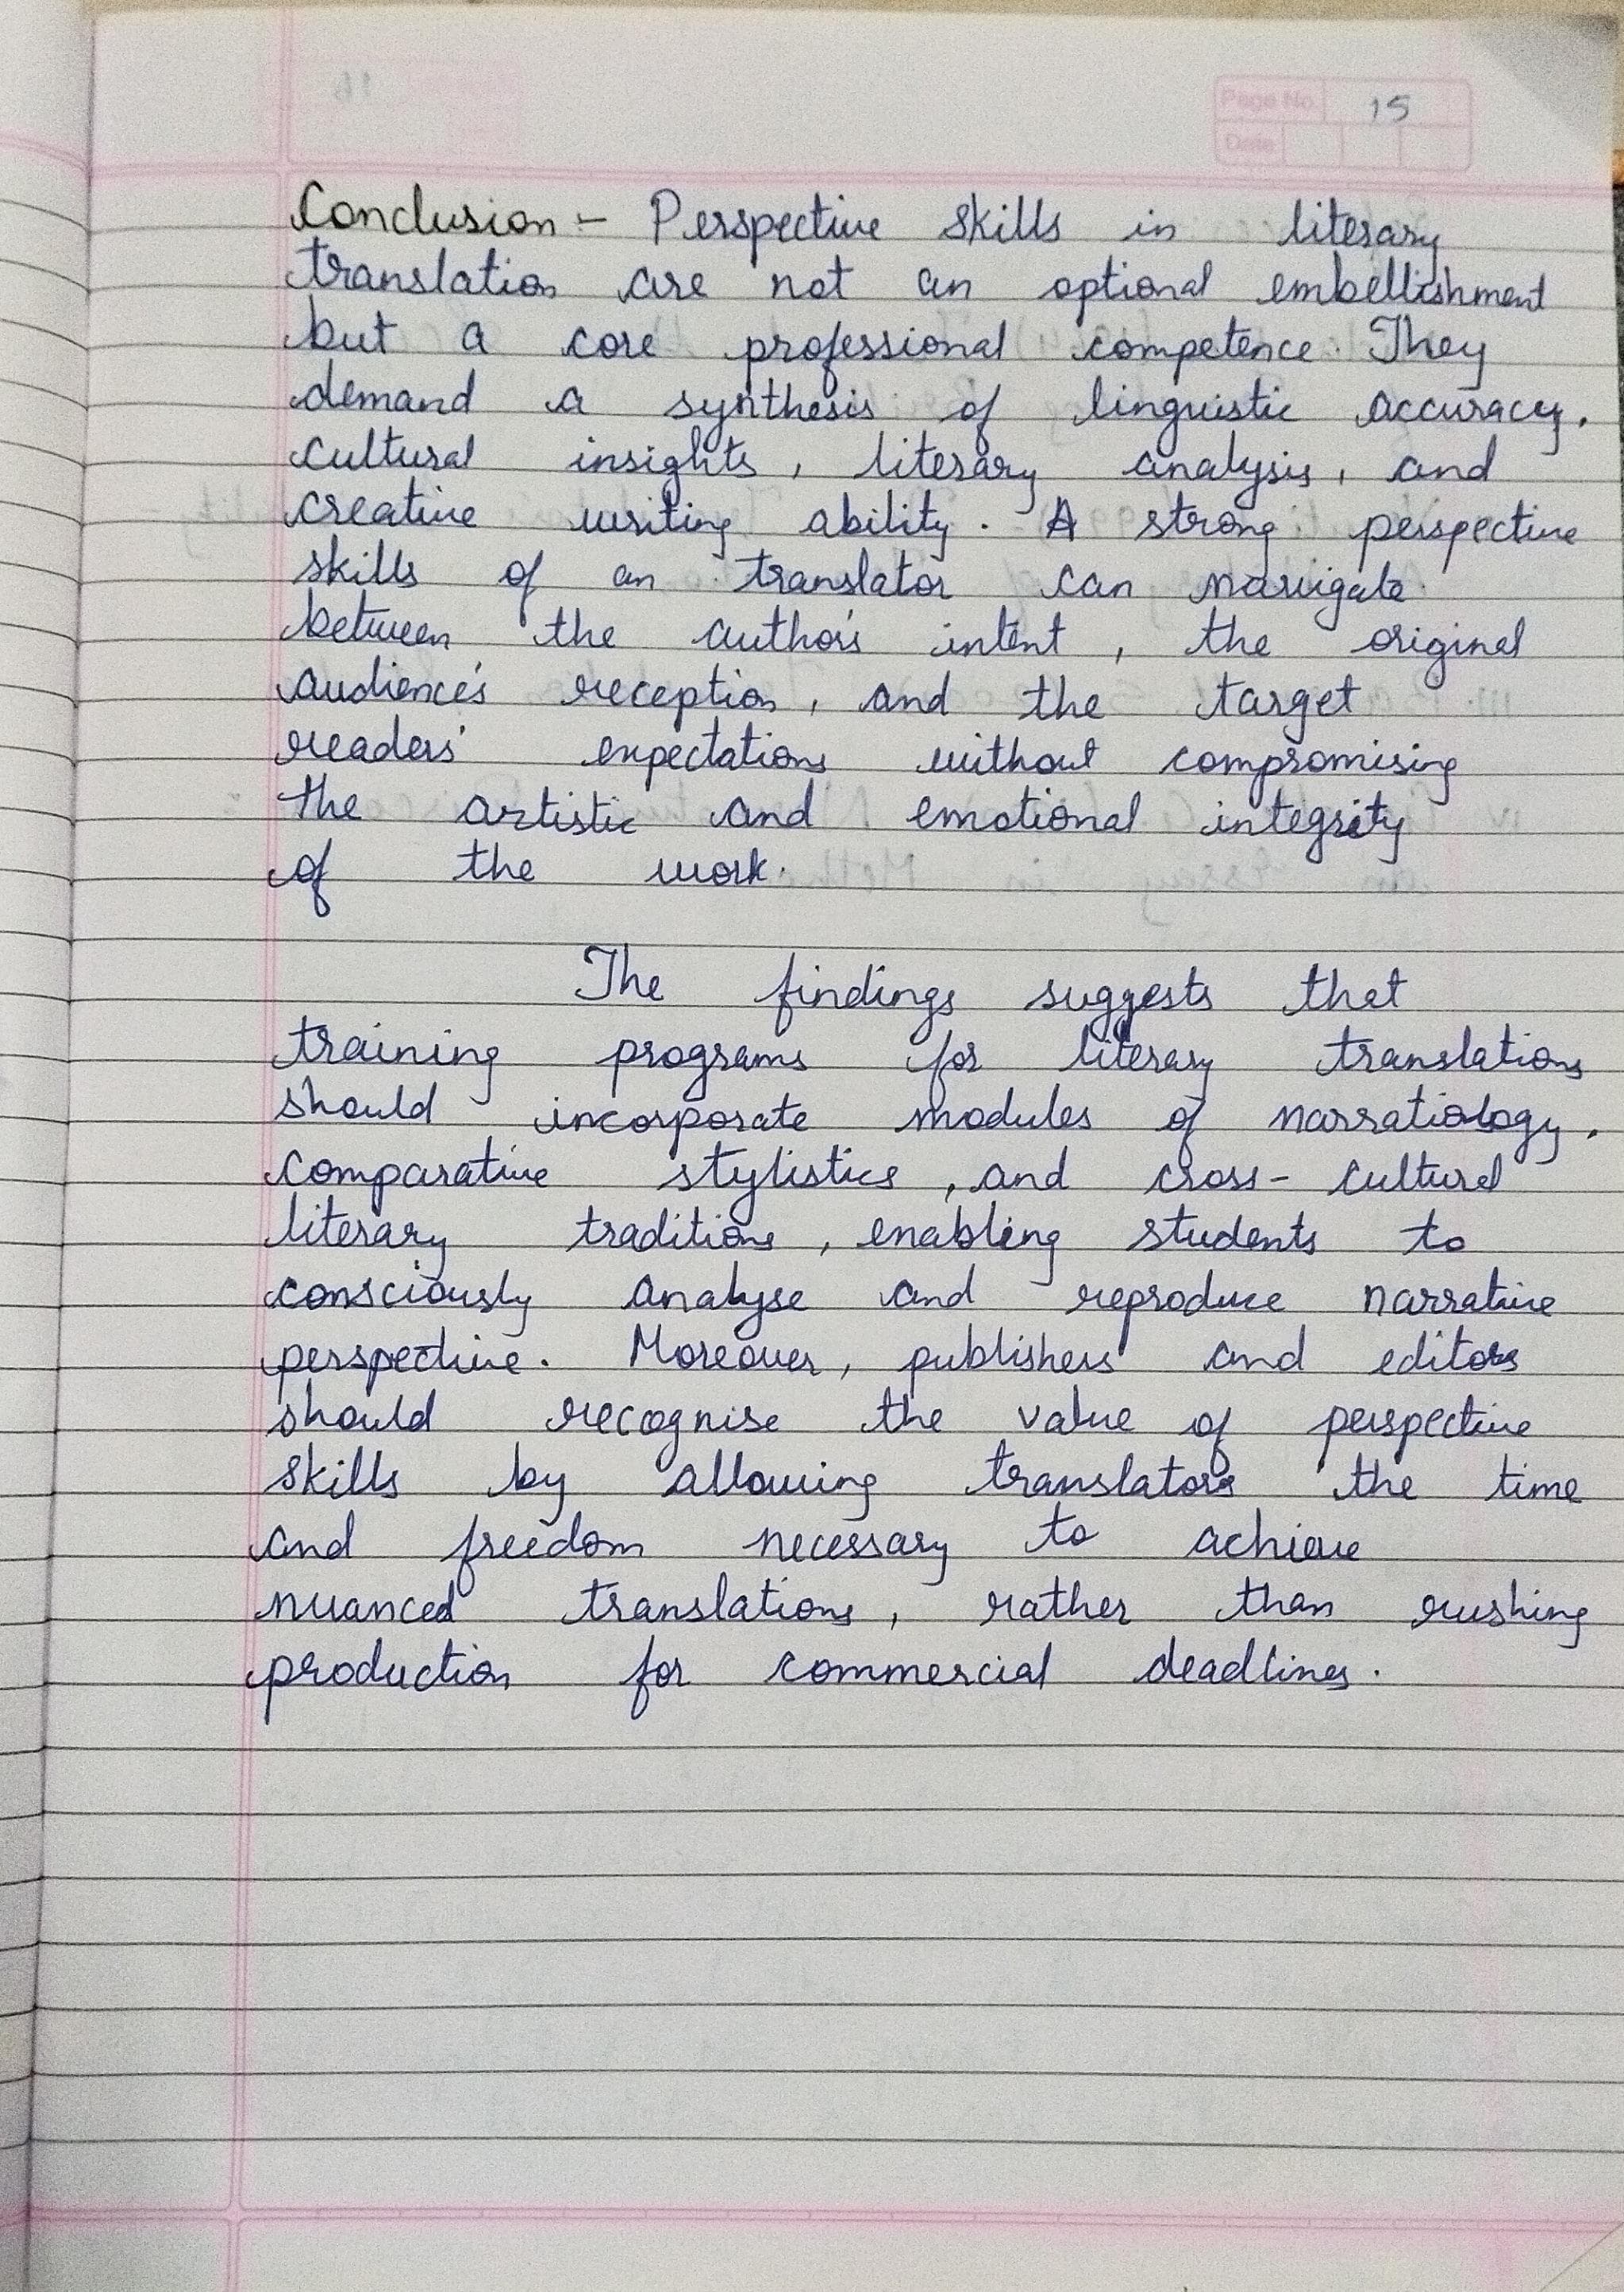 Page No. 15
Date
Conclusion - Perspective skills in literary
translation are not an optional embellishment
but a core professional competence. They
demand a synthesis of linguistic accuracy,
cultural insights, literary analysis, and
creative writing ability. A strong perspective
skills of an translator can navigate
between the author's intent, the original
audience's reception, and the target
readers' expectations without compromising
the artistic and emotional integrity
of the work.
The findings suggests that
training programs for literary translations
should incorporate modules of narratiology,
comparative stylistics, and cross-cultural
literary traditions, enabling students to
consciously analyse and reproduce narrative
perspective. Moreover, publishers and editors
should recognise the value of perspective
skills by allowing translators the time
and freedom necessary to achieve
nuanced translations, rather than rushing
production for commercial deadlines.